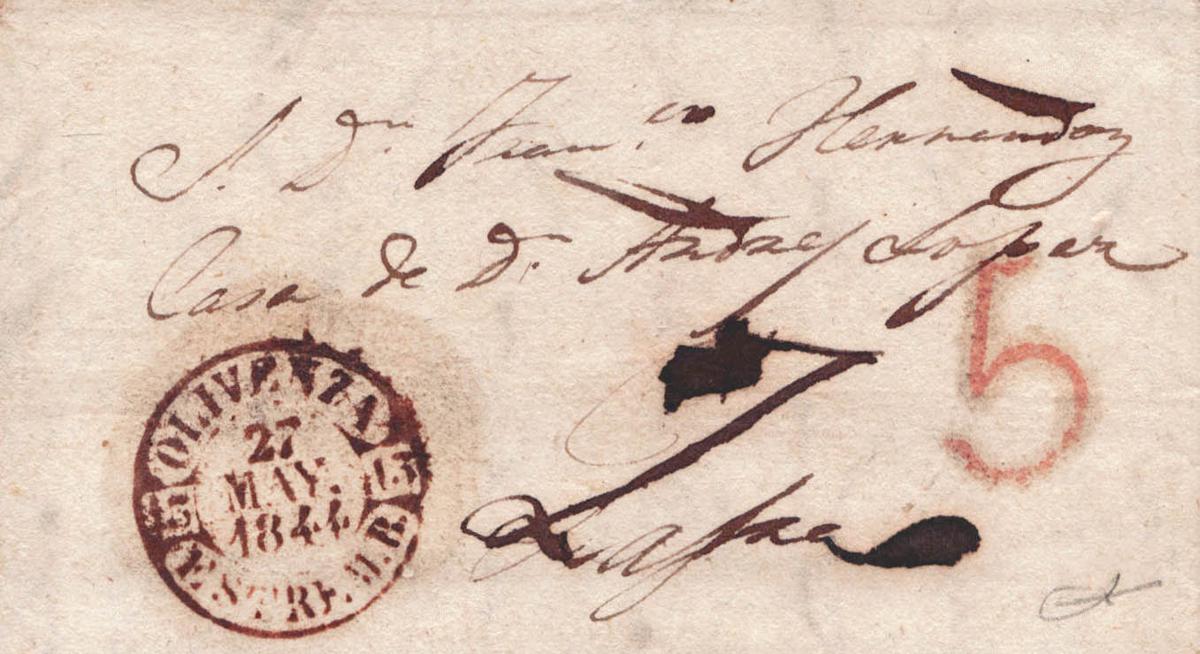 S. Dn. Franco. Hernandez
Casa de Dn. Andres Lopez
5
Zafra
OLIVENZA
27
MAY.
1844
ESTREM. B.